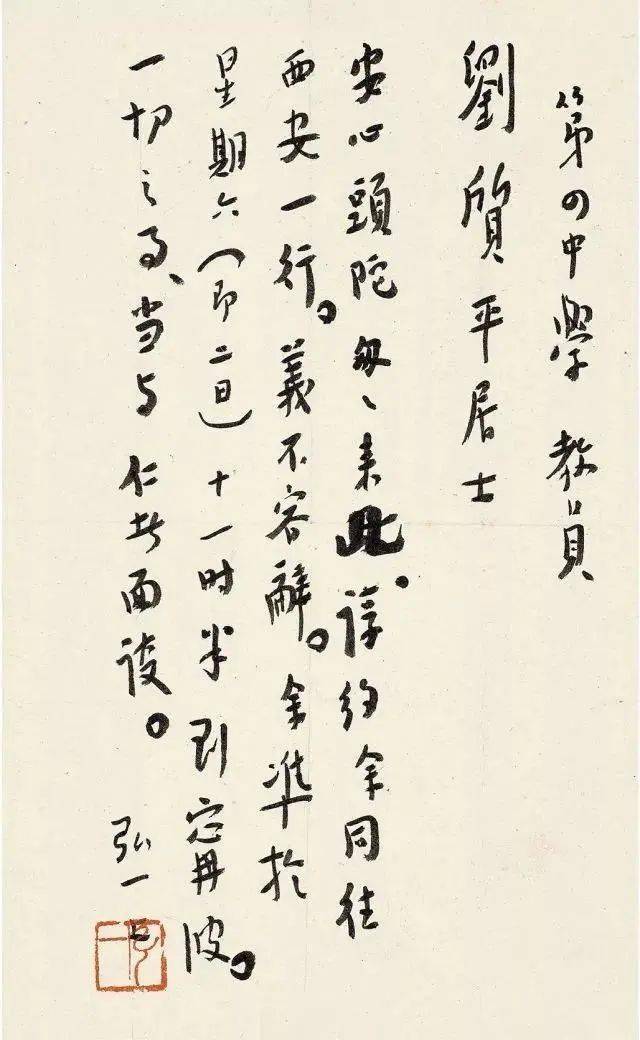 第四中學 教員
劉質平居士
安心頭陀匆々来此。諄約余同往
西安一行。義不容辭。余準於
星期六（即二日）十一时半到甯波。
一切之事、当与 仁者面谈。
弘一上